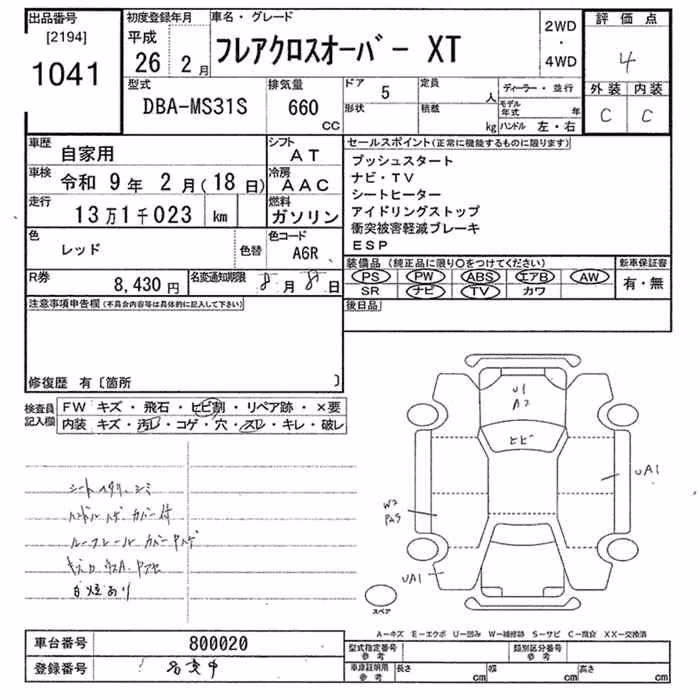 出品番号
[2194]
1041
初度登録年月
平成
26 2月
車名・グレード
フレアクロスオーバー XT
2WD
・
4WD
評価点
4
外装 内装
C C
型式
DBA-MS31S
排気量
660
CC
ドア
5
形状
定員
人
積載
kg
ディーラー・並行
モデル年式 年
ハンドル 左・右
車歴
自家用
シフト
AT
車検
令和 9年 2月(18日)
冷房
AAC
走行
13万1千023 km
燃料
ガソリン
色
レッド
色替
色コード
A6R
R券
8,430円
名変通知期限
8月8日
セールスポイント(正常に機能するものに限ります)
プッシュスタート
ナビ・TV
シートヒーター
アイドリングストップ
衝突被害軽減ブレーキ
ESP
装備品(純正品に限り○をつけてください)
PS PW ABS エアB AW
SR ナビ TV カワ
新車保証書
有・無
後日品
注意事項申告欄(不具合内容等は具体的に記入して下さい)
修復歴 有〔箇所 〕
検査員
記入欄
FW キズ・飛石・ヒビ割・リペア跡・×要
内装 キズ・汚レ・コゲ・穴・スレ・キレ・破レ
シミ
ハンドル カバー付
ルーフレール カバー
白煙あり
U1
A2
ヒビ
UA1
W2
UA1
スペア
A−キズ E−エクボ U−凹み W−補修跡 S−サビ C−腐食 XX−交換済
車台番号
800020
登録番号
名変中
型式指定番号
参考
類別区分番号
参考
車庫証明用
参考
長さ cm
幅 cm
高さ cm